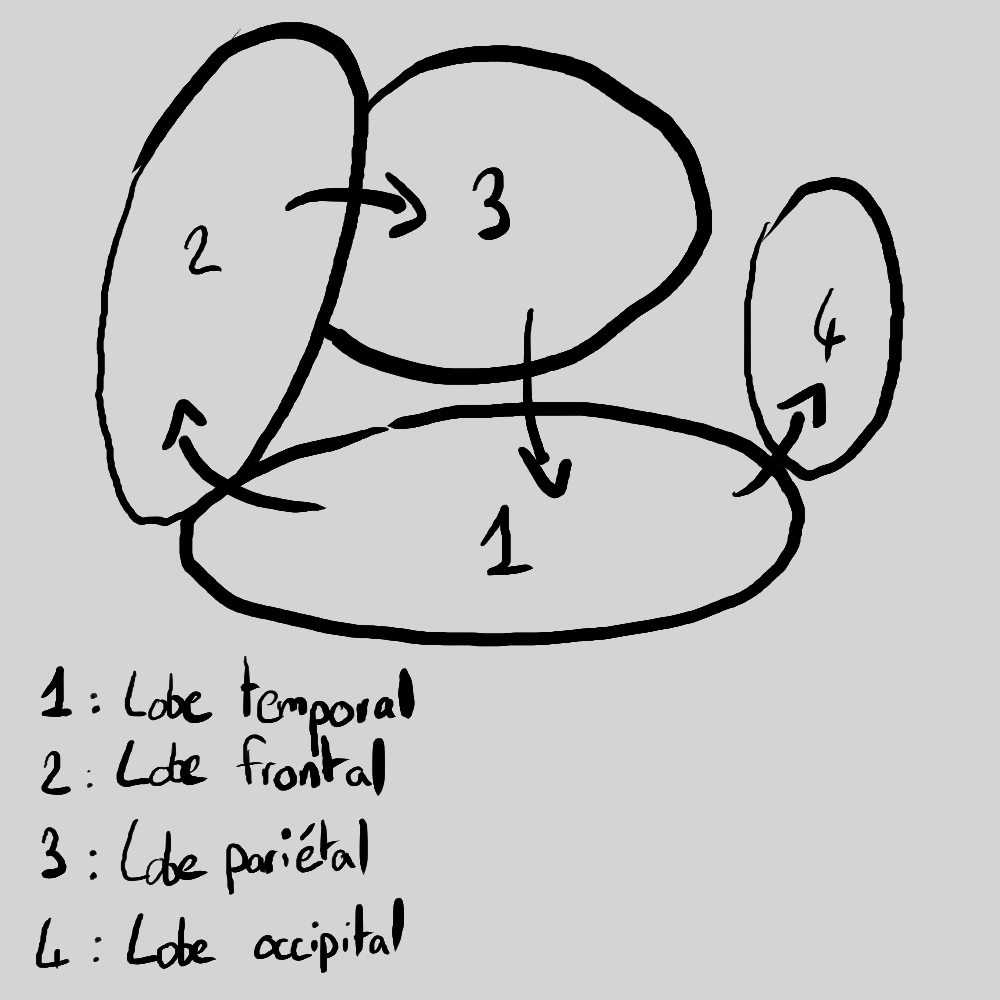 2
3
4
1
1 : Lobe temporal
2 : Lobe frontal
3 : Lobe pariétal
4 : Lobe occipital